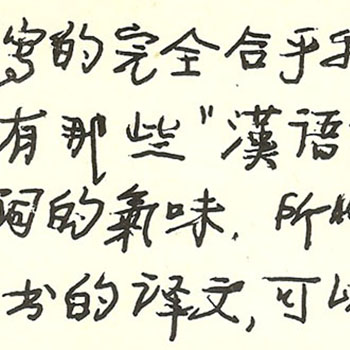 寫的完全合乎
有那些"漢语
的氣味.所
书的译文,可以